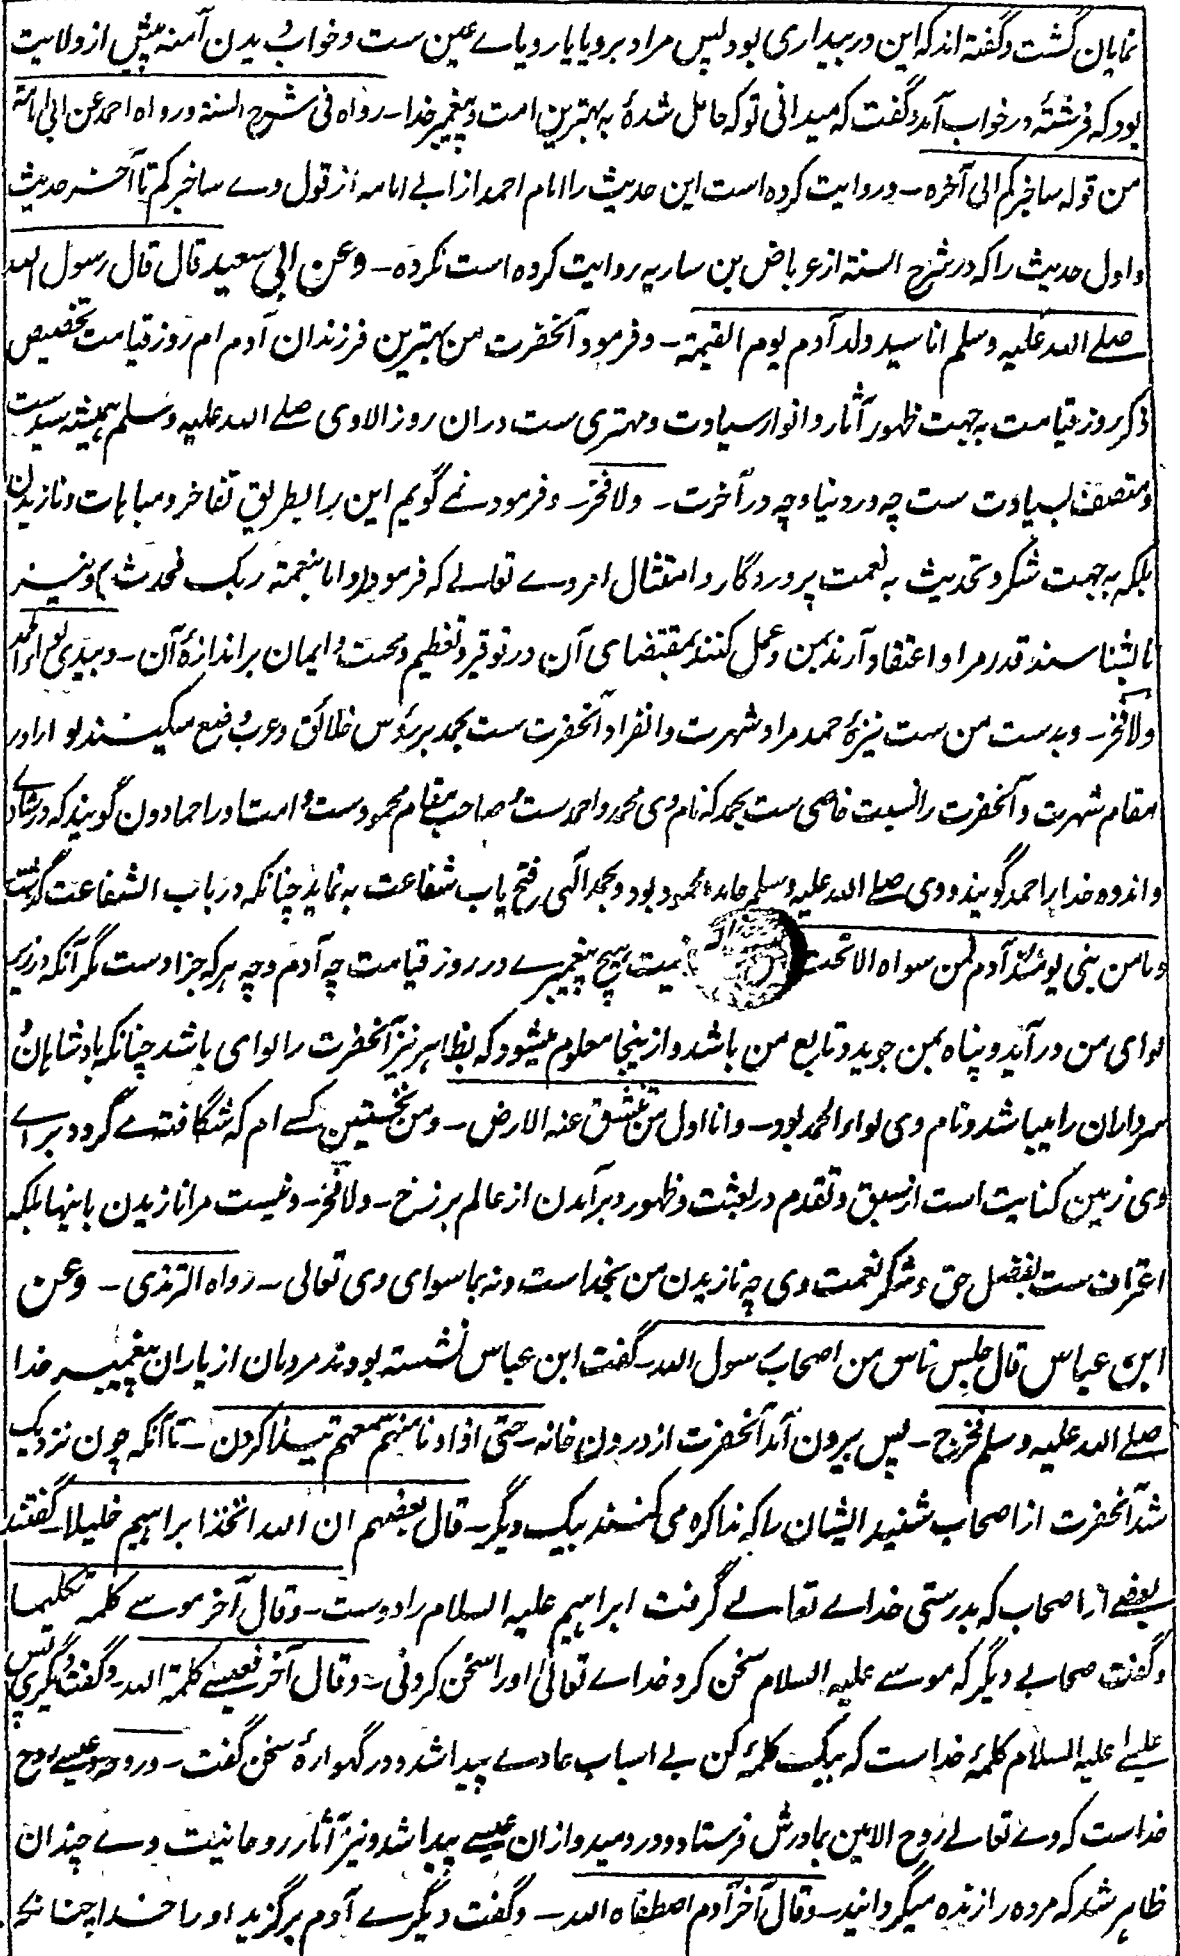 نمایان گشت و گفته اند که این در بیداری بود پس مراد برویا یا رویاے عین ست و خواب دیدن آمنه پیش از ولادت
بود که فرشتهٔ در خواب آمد و گفت که میدانی تو که حامل شدهٔ به بهترین امت و پیغمبر خدا ۔ رواه فی شرح السنة و رواه احمد عن ابی امامة
من قوله ساخبرکم الی آخره ۔ و روایت کرده است این حدیث را امام احمد از ابے امامه از قول وے ساخبرکم تا آخر حدیث
و اول حدیث را که در شرح السنة از عرباض بن ساریه روایت کرده است نکرده ۔ و عن ابی سعید قال قال رسول الله
صلے الله علیه وسلم انا سید ولد آدم یوم القیمة ۔ و فرمود آنحضرت من بهترین فرزندان آدم ام روز قیامت تخصیص
ذکر روز قیامت به جهت ظهور آثار و انوار سیادت و مهتری ست دران روز والا وی صلے الله علیه وسلم همیشه سید ست
و متصف بسیادت ست چه در دنیا و چه در آخرت ۔ ولا فخر ۔ و فرمود نمے گویم این را بطریق تفاخر و مباهات و نازیدن
بلکه به جهت شکر و تحدیث به نعمت پروردگار و امتثال امر وے تعالے که فرمود (و اما بنعمة ربک فحدث) و نیز
تا بشناسند قدر مرا و اعتقاد آرند بمن و عمل کنند بمقتضای آن در توقیر و تعظیم و محبت و ایمان بر اندازهٔ آن ۔ و بیدی لواء الحمد
ولا فخر ۔ و بدست من ست نیزهٔ حمد مراد شهرت و انفراد آنحضرت ست بحمد بر رؤس خلائق و عرب وضع میکنند لوا را در
مقام شهرت و آنحضرت را نسبت خاصی ست بحمد که نام وی محمد و احمد ست و صاحب مقام محمود ست و امت او را حمادون گویند که در شادی
و اندوه خدا را حمد گویند و وی صلے الله علیه وسلم حامد و محمود بود و بحمد الهی فتح یاب شفاعت به نماید چنانکه در باب الشفاعت گذشت
و ما من نبی یومئذ آدم فمن سواه الا تحت نیست هیچ پیغمبرے در روز قیامت چه آدم و چه هر که جز اوست مگر آنکه در زیر
لوای من در آید و پناه بمن جوید و تابع من باشد و ازینجا معلوم میشود که بظاهر نیز آنحضرت را لوای باشد چنانکه بادشاهان و
سرداران را میباشد و نام وی لواء الحمد بود ۔ و انا اول من تنشق عنه الارض ۔ و من نخستین کسے ام که شگافته گردد براے
وی زمین کنایت است از سبق و تقدم در بعثت و ظهور و بر آمدن از عالم برزخ ۔ ولا فخر ۔ و نیست مرا نازیدن باینها بلکه
اعتراف ست بفضل حق و شکر نعمت وی چه نازیدن من بخداست و نه بما سوای وی تعالی ۔ رواه الترمذی ۔ و عن
ابن عباس قال جلس ناس من اصحاب رسول الله ۔ گفت ابن عباس نشسته بودند مردمان از یاران پیغمبر خدا
صلے الله علیه وسلم فخرج ۔ پس بیرون آمد آنحضرت از درون خانه ۔ حتی اذا دنا منهم سمعهم یتذاکرون ۔ تا آنکه چون نزدیک
شد آنحضرت از اصحاب شنید ایشان را که مذاکره می کنند بیک دیگر ۔ قال بعضهم ان الله اتخذ ابراهیم خلیلا ۔ گفتند
بعضے از اصحاب که بدرستی خداے تعالے گرفت ابراهیم علیه السلام را دوست ۔ و قال آخر موسے کلمه تکلیما
و گفت صحابے دیگر که موسے علیه السلام سخن کرد خداے تعالیٰ او را سخن کردنی ۔ و قال آخر فعیسے کلمة الله ۔ و گفت دیگری پس
عیسے علیه السلام کلمهٔ خداست که بیک کلمهٔ کن بے اسباب عادے پیدا شد و در گهوارهٔ سخن گفت ۔ و روحه و عیسے روح
خداست که وے تعالے روح الامین بمادرش فرستاد و در دمید و ازان عیسے پیدا شد و نیز آثار روحانیت وے چندان
ظاهر شد که مرده را زنده میگردانید ۔ و قال آخر آدم اصطفاه الله ۔ و گفت دیگرے آدم برگزید او را خدا چنانچه